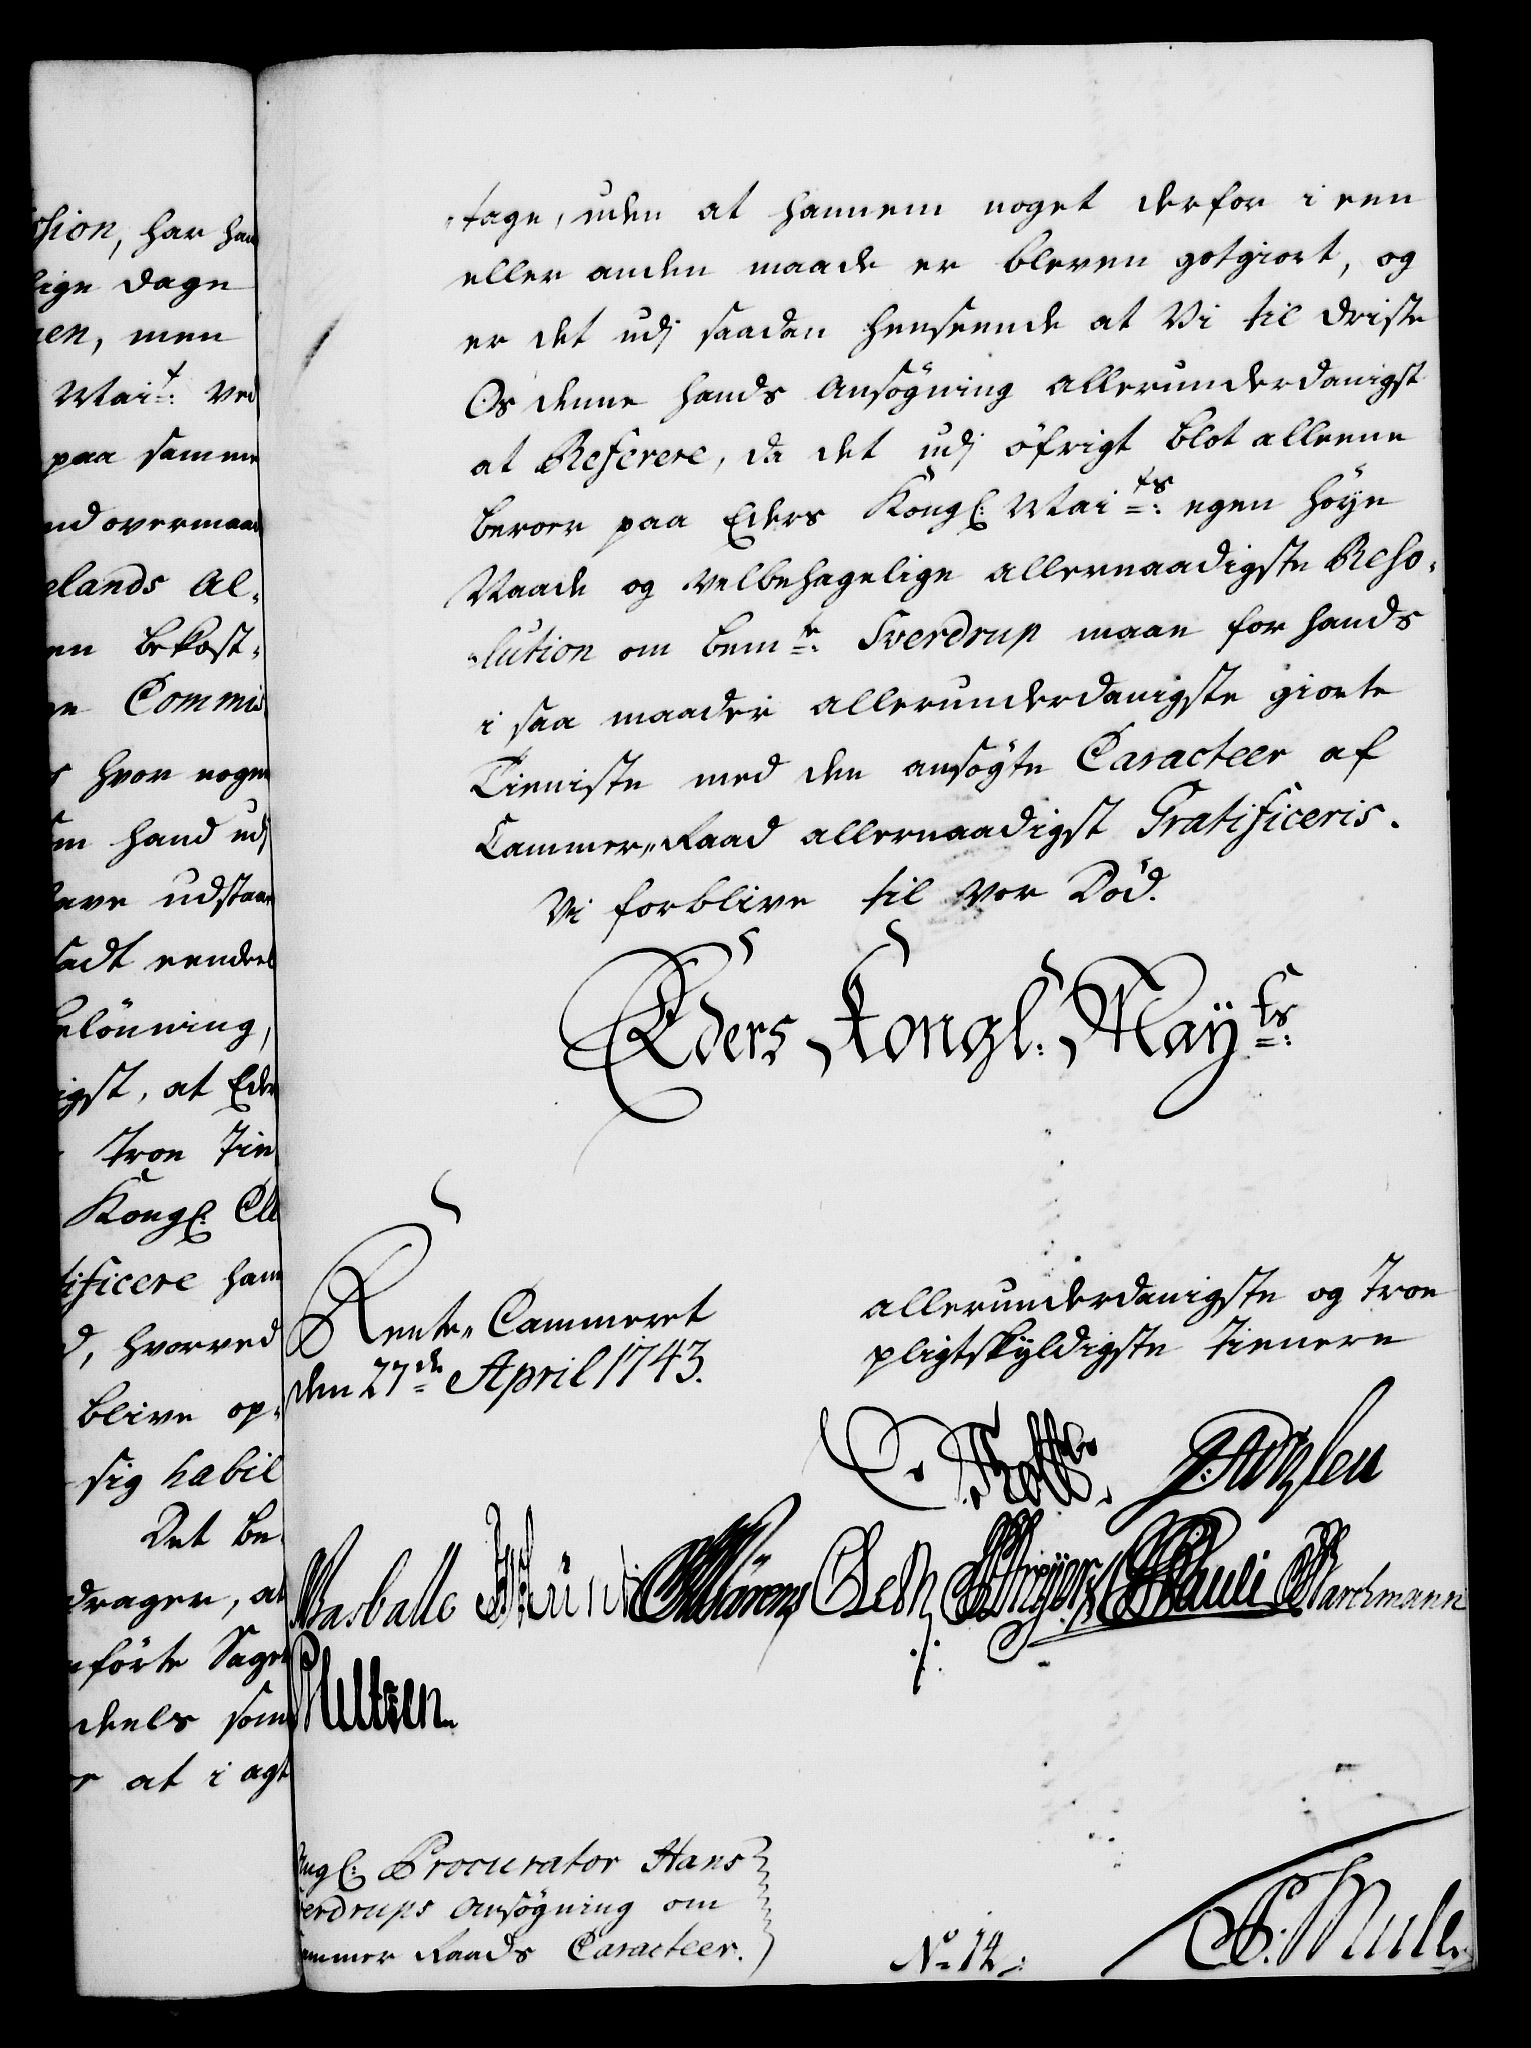 shion, har han
lige dage
nen, men
Mai.t: ved
paa samme
nd overmaade
elands Al-
en bekost-
ge Commis
s hvor nogen
em hand udj
have udstaae
sadt eendeel
belönning,
igst, at Eder
troe tien
Kongl: Al
tificere ham
d, hvorved
blive op-
sig habil
Det be-
drager, at
nförte Sager
deels som
er at i agt
-tage, uden at hannem noget derfor i een
eller anden maade er bleven gotgiort, og
er det udj saadan henseende at Vi til driste
Os denne hands Ansögning allerunderdanigst
at Referere, da det udj öfrigt blot alleene
beroer paa Eders Kongl: Mai.ts: egen höye
Naade og velbehagelige allernaadigste Reso-
-lution om bem.te: Sverdrup maae for hands
i saa maader allerunderdanigste giorte
Tieniste med den ansögte Caracteer af
Cammer-Raad allernaadigst Gratificeris.
Vi forblive til vor Död.
Eders Kongl: May.ts:
Rente-Cammeret
den 27.de April 1743.
allerunderdanigste og troe
pligtskyldigste tienere
Basballe Pauli Barchmann
Neltzen.
ngl: Procurator Hans
verdrups Ansögning om
ammer Raads Caracteer.
No 12.
Mule